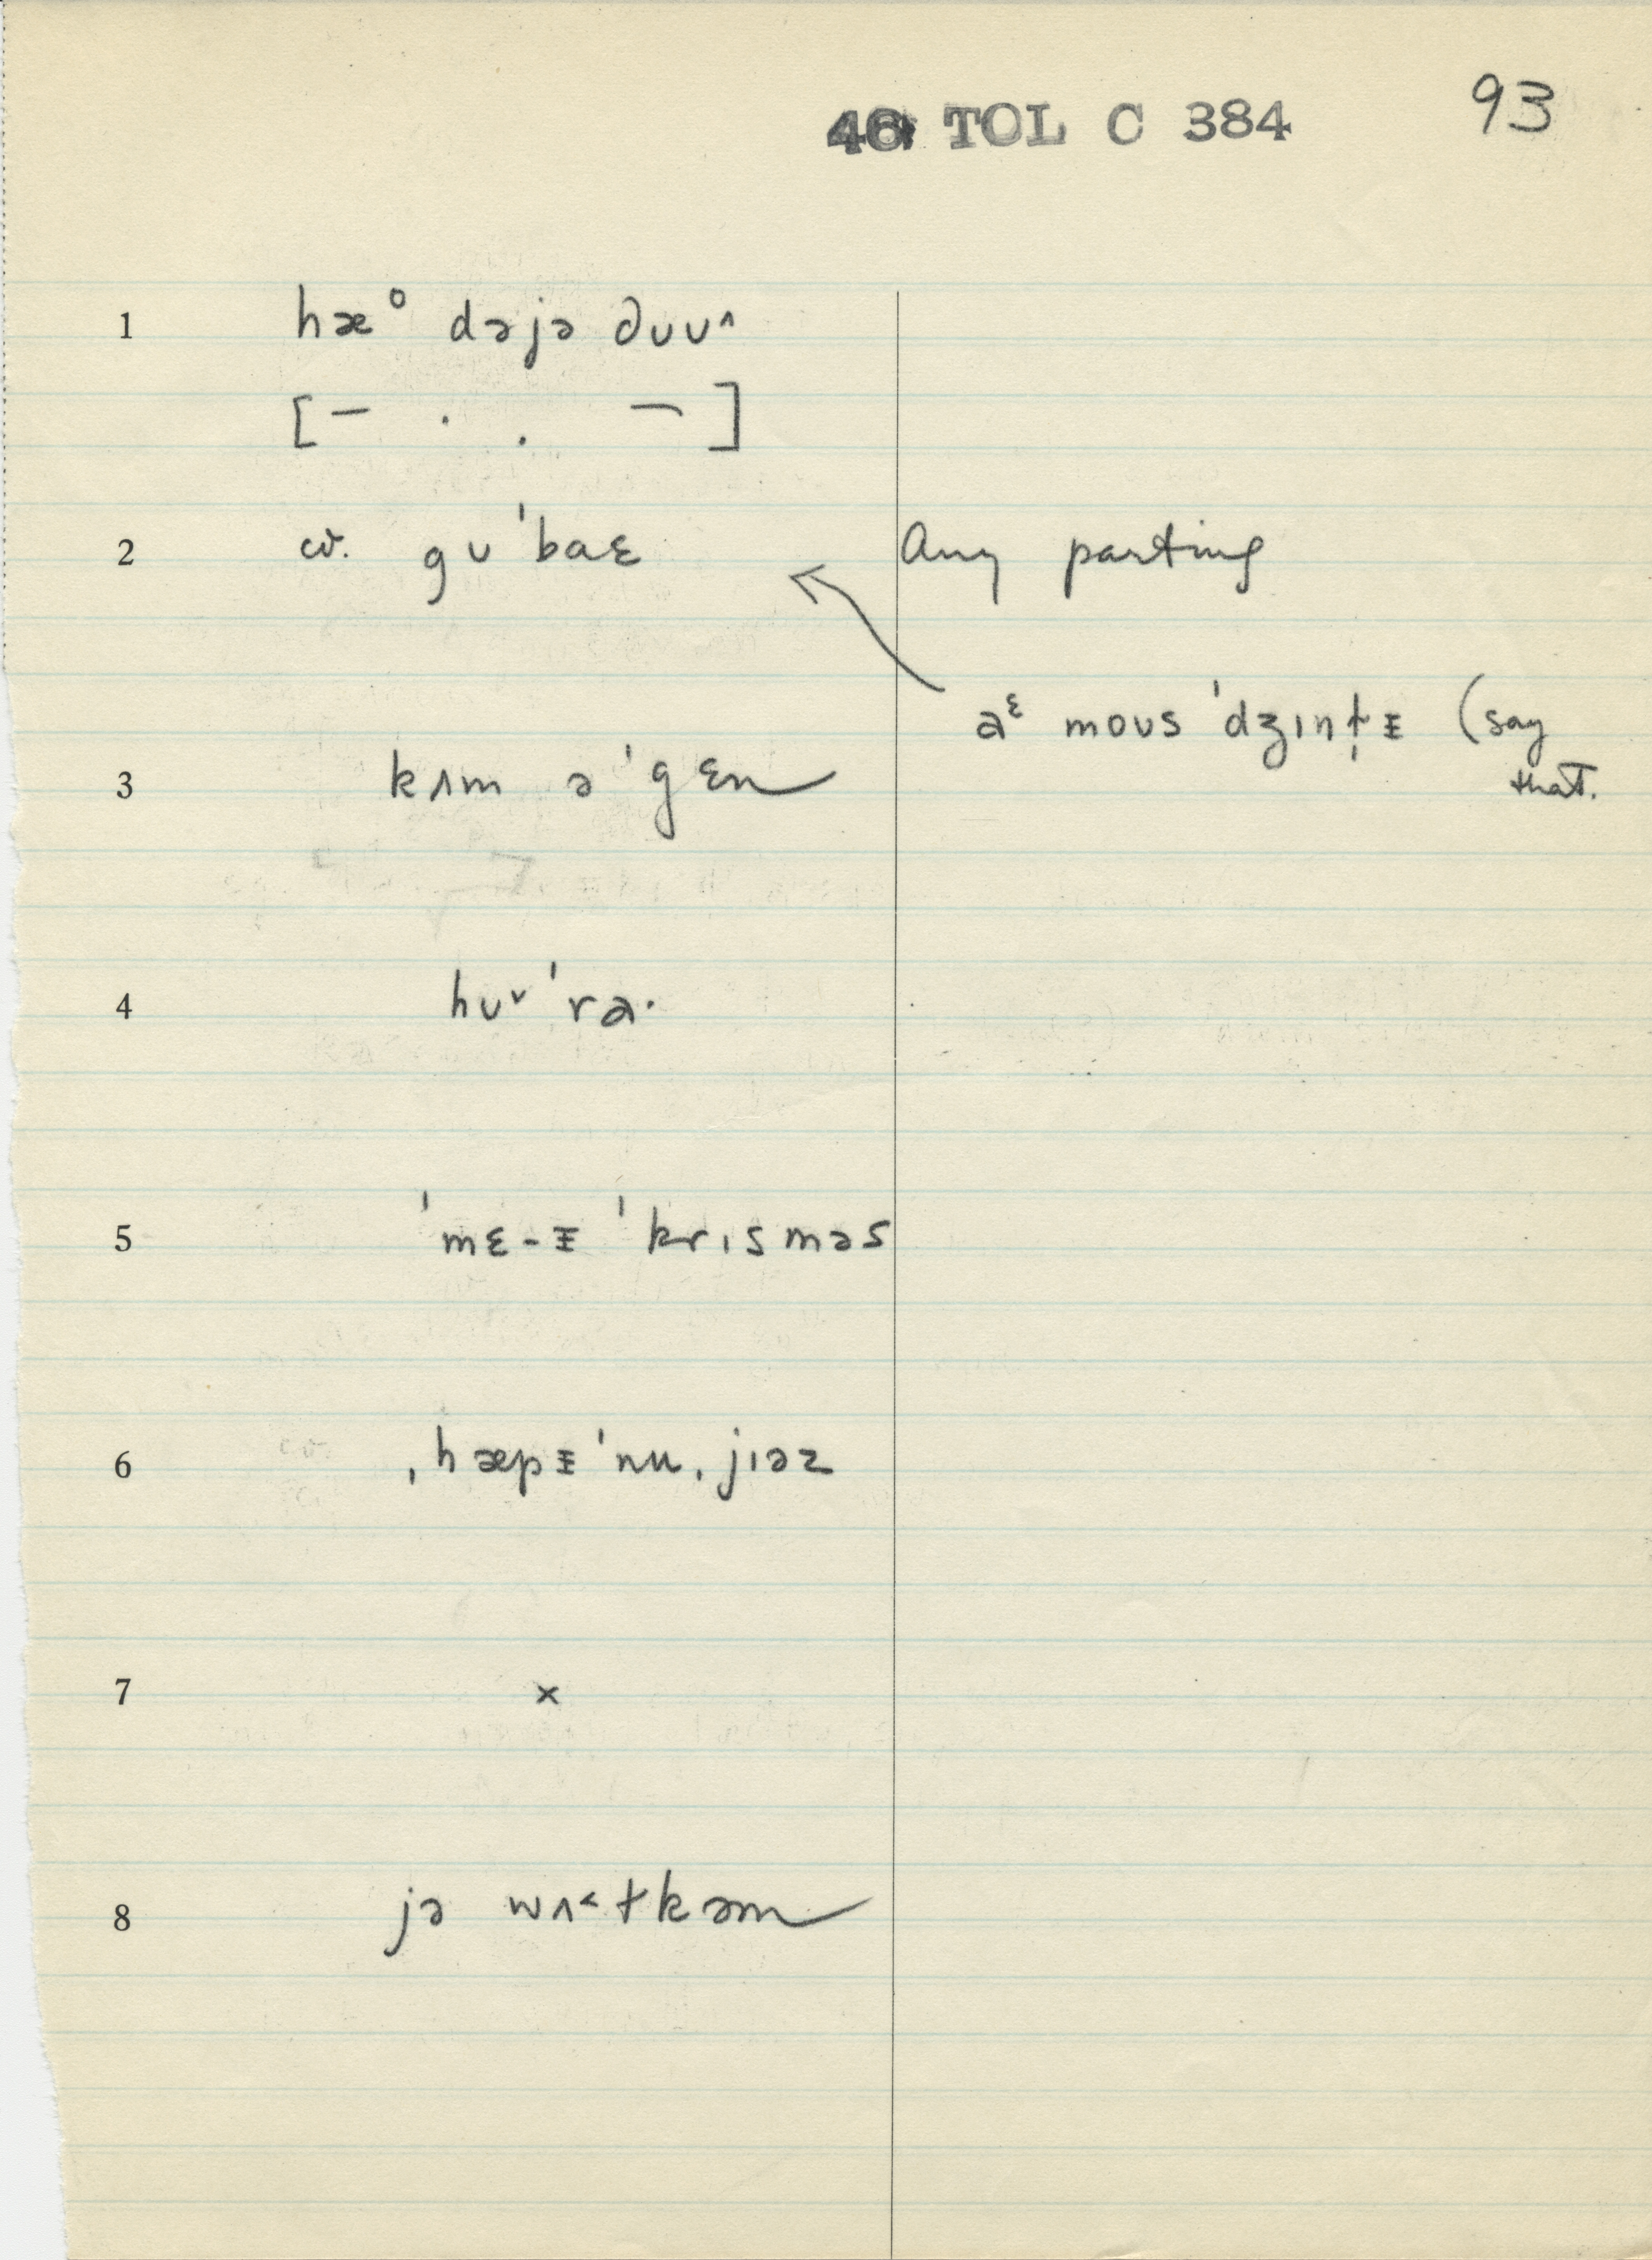 46 TOL C 384 93
1 hæᵒ dəjə ðʊuʌ
[– . . ¬]
2 cv. gʊ'baɛ Any parting
aᵋ moʊs 'dʒɪnt̩ᵻ (say
that.
3 kʌm ə'gɛn
4 hʊᵛ'ra·
5 'mɛ-ᵻ 'krɪsməs
6 ˌhæpᵻ'nuˌjɪəz
7 ×
8 jə wʌ˂ɫkəm